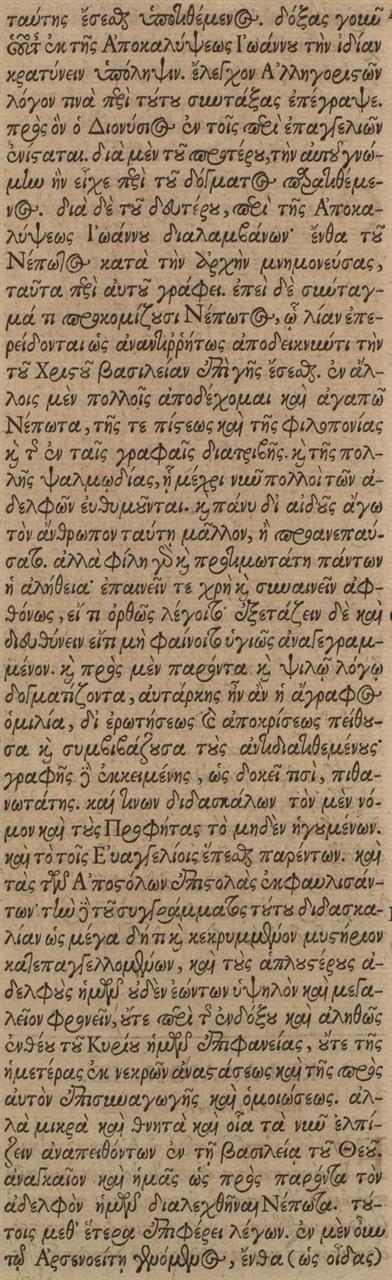 ταύτης ἔσεσθαι ὑποτιθέμενος. δόξας γοῦν
οὗτος ἐκ τῆς Ἀποκαλύψεως Ἰωάννου τὴν ἰδίαν
κρατύνειν ὑπόληψιν. ἔλεγχον Ἀλληγοριστῶν
λόγον τινὰ περὶ τούτου συντάξας ἐπέγραψε.
πρὸς ὃν ὁ Διονύσιος ἐν τοῖς περὶ ἐπαγγελιῶν
ἐνίσταται. διὰ μὲν τοῦ προτέρου, τὴν αὐτοῦ γνώ-
μην ἣν εἶχε περὶ τοῦ δόγματος παρατιθέμε-
νος. διὰ δὲ τοῦ δευτέρου, περὶ τῆς Ἀποκα-
λύψεως Ἰωάννου διαλαμβάνων· ἔνθα τοῦ
Νέπωτος κατὰ τὴν ἀρχὴν μνημονεύσας,
ταῦτα περὶ αὐτοῦ γράφει. ἐπεὶ δὲ σύνταγ-
μά τι προκομίζουσι Νέπωτος, ᾧ λίαν ἐπε-
ρείδονται ὡς ἀναντιρρήτως ἀποδεικνύντι τὴν
τοῦ Χριστοῦ βασιλείαν ἐπὶ γῆς ἔσεσθαι. ἐν ἄλ-
λοις μὲν πολλοῖς ἀποδέχομαι καὶ ἀγαπῶ
Νέπωτα, τῆς τε πίστεως καὶ τῆς φιλοπονίας
καὶ τῆς ἐν ταῖς γραφαῖς διατριβῆς. καὶ τῆς πολ-
λῆς ψαλμωδίας, ᾗ μέχρι νῦν πολλοὶ τῶν ἀ-
δελφῶν εὐθυμοῦνται. καὶ πάνυ δι αἰδοῦς ἄγω
τὸν ἄνθρωπον ταύτῃ μᾶλλον, ᾗ προανεπαύ-
σατο. ἀλλὰ φίλη γὰρ καὶ προτιμωτάτη πάντων
ἡ ἀλήθεια· ἐπαινεῖν τε χρὴ καὶ συναινεῖν ἀφ-
θόνως, εἴ τι ὀρθῶς λέγοιτο· ἐξετάζειν δὲ καὶ
διευθύνειν εἴ τι μὴ φαίνοιτο ὑγιῶς ἀναγεγραμ-
μένον. καὶ πρὸς μὲν παρόντα καὶ ψιλῷ λόγῳ
δογματίζοντα, αὐτάρκης ἦν ἂν ἡ ἄγραφος
ὁμιλία, δι ἐρωτήσεως καὶ ἀποκρίσεως πείθου-
σα καὶ συμβιβάζουσα τοὺς ἀντιδιατιθεμένους·
γραφῆς δὲ ἐκκειμένης, ὡς δοκεῖ τισὶ, πιθα-
νωτάτης. καί τινων διδασκάλων τὸν μὲν νό-
μον καὶ τοὺς Προφήτας τὸ μηδὲν ἡγουμένων.
καὶ τὸ τοῖς Εὐαγγελίοις ἕπεσθαι παρέντων. καὶ
τὰς τῶν Ἀποστόλων ἐπιστολὰς ἐκφαυλισάν-
των· τὴν δὲ τοῦ συγγράμματος τούτου διδασκα-
λίαν ὡς μέγα δή τι καὶ κεκρυμμένον μυστήριον
κατεπαγγελλομένων, καὶ τοὺς ἁπλουστέρους ἀ-
δελφοὺς ἡμῶν οὐδὲν ἐώντων ὑψηλὸν καὶ μεγα-
λεῖον φρονεῖν, οὔτε περὶ τῆς ἐνδόξου καὶ ἀληθῶς
ἐνθέου τοῦ Κυρίου ἡμῶν ἐπιφανείας, οὔτε τῆς
ἡμετέρας ἐκ νεκρῶν ἀναστάσεως καὶ τῆς πρὸς
αὐτὸν ἐπισυναγωγῆς καὶ ὁμοιώσεως. ἀλ-
λὰ μικρὰ καὶ θνητὰ καὶ οἷα τὰ νῦν ἐλπί-
ζειν ἀναπειθόντων ἐν τῇ βασιλείᾳ τοῦ Θεοῦ.
ἀναγκαῖον καὶ ἡμᾶς ὡς πρὸς παρόντα τὸν
ἀδελφὸν ἡμῶν διαλεχθῆναι Νέπωτα. τού-
τοις μεθ' ἕτερα ἐπιφέρει λέγων. ἐν μὲν οὖν
τῷ Ἀρσενοείτῃ γενόμενος, ἔνθα (ὡς οἶδας)